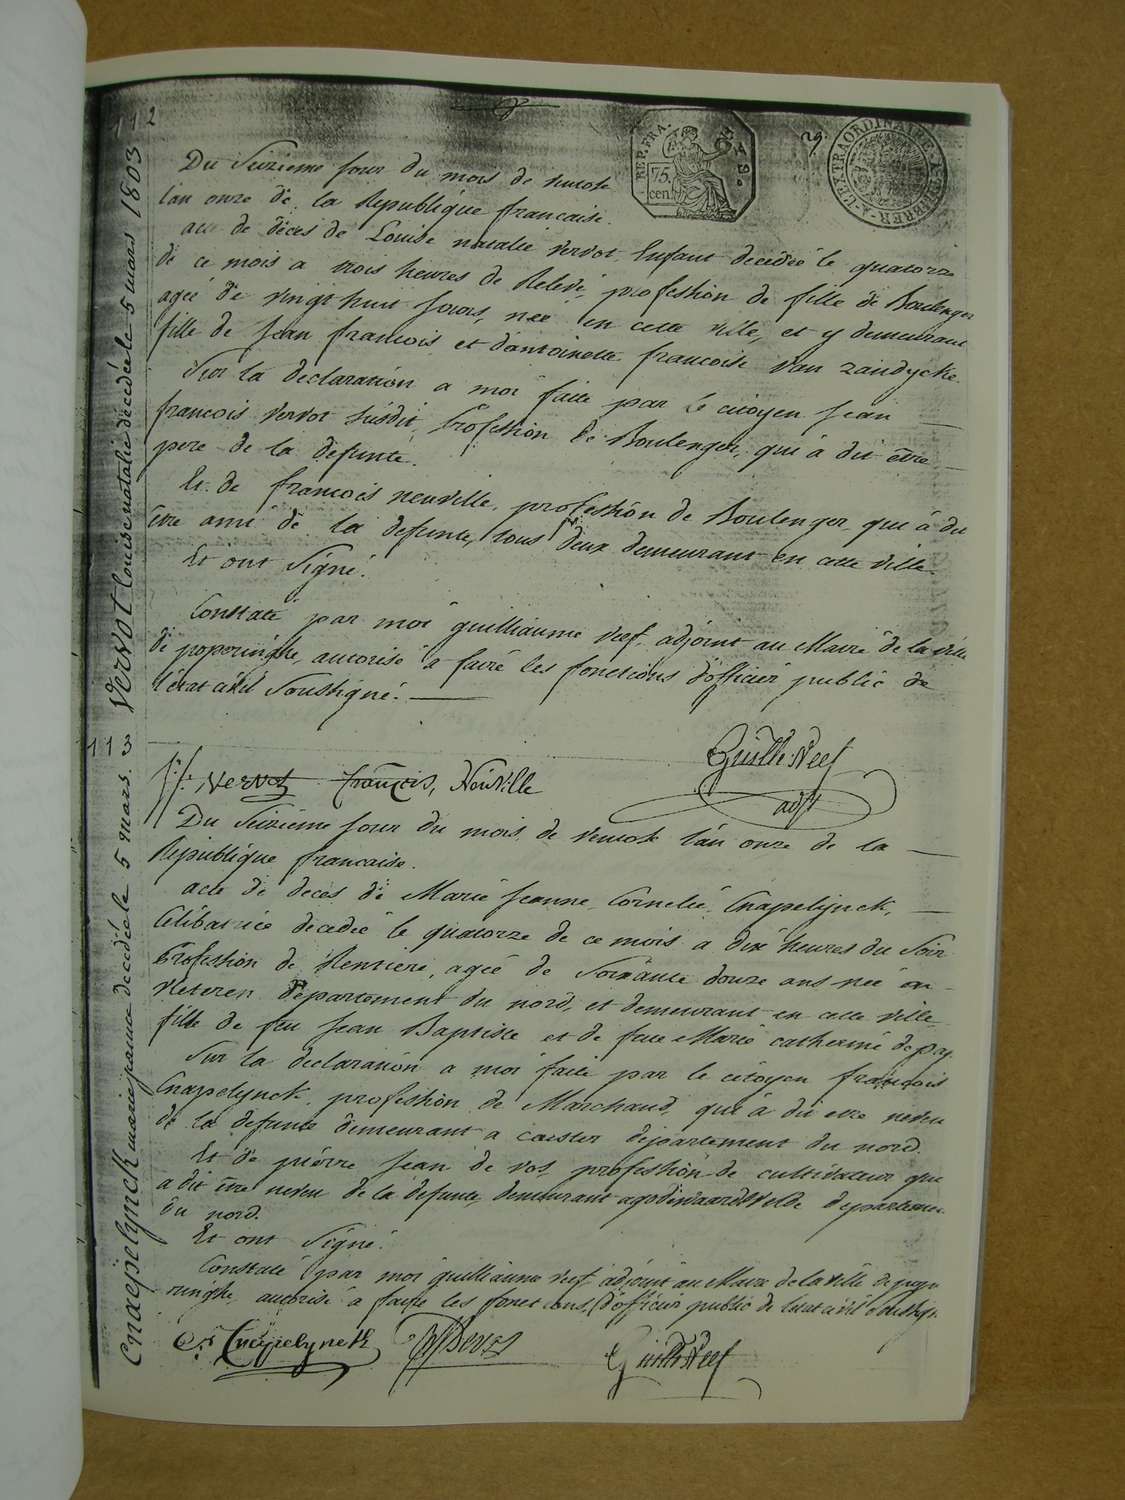 112
REP. FRA.
75. cen.
29
EXTRAORDINAIRE
Vervot louise natalie décédée le 5 mars 1803
Du Seizieme jour du mois de ventose
l'an onze de la République francaise.
acte de décès de Louise natalie vervot Enfant decedée le quatorze
de ce mois a trois heures de Relevé, profession de fille de Boulenger
agée de vingt huit jours, née en cette ville, et y demeurant
fille de Jean francois et d'antoinette francoise Van Zandycke.
Sur la declaration a moi faite par le citoyen Jean
francois Vervot susdit, Profession de Boulenger, qui à dit être
pere de la defunte.
Et de francois neuville, profession de Boulenger qui à dit
être ami de la defunte, tous deux demeurant en cette ville.
Et ont signé.
Constaté par moi guilliaume neef, adjoint au Maire de la ville
de poperinghe, autorisé à faire les fonctions d'officier public de
l'état civil Soussigné.
Guille Neef
adjt
j: f: vervot françois, Neuville
113
Cnaepelynck marie jeanne decédée le 5 mars.
Du Seizieme jour du mois de ventose l'an onze de la
République francaise.
acte de deces de Marie Jeanne Cornelie Cnapelijnck,
Célibatrice decedée le quatorze de ce mois a dix heures du Soir
Profession de Rentiere, agée de Soixante douze ans née en
Meteren département du nord, et demeurant en cette ville,
fille de feu Jean Baptiste et de feue Marie catherine depap
Sur la declaration a moi faite par le citoyen francois
Cnapelynck, profession de Marchand, qui à dit etre neveu
de la defunte demeurant a caester département du nord.
Et de pierre Jean de vos, profession de cultivateur qui
a dit être neveu de la defunte, demeurant a godewaersvelde departement
du nord.
Et ont signé.
Constaté par moi guilliaume neef adjoint au Maire de la ville de pope
ringhe, autorisé a faire les fonctions d'officier public de l'etat civil soussigné
Cnapelynck
Devos
Guille Neef